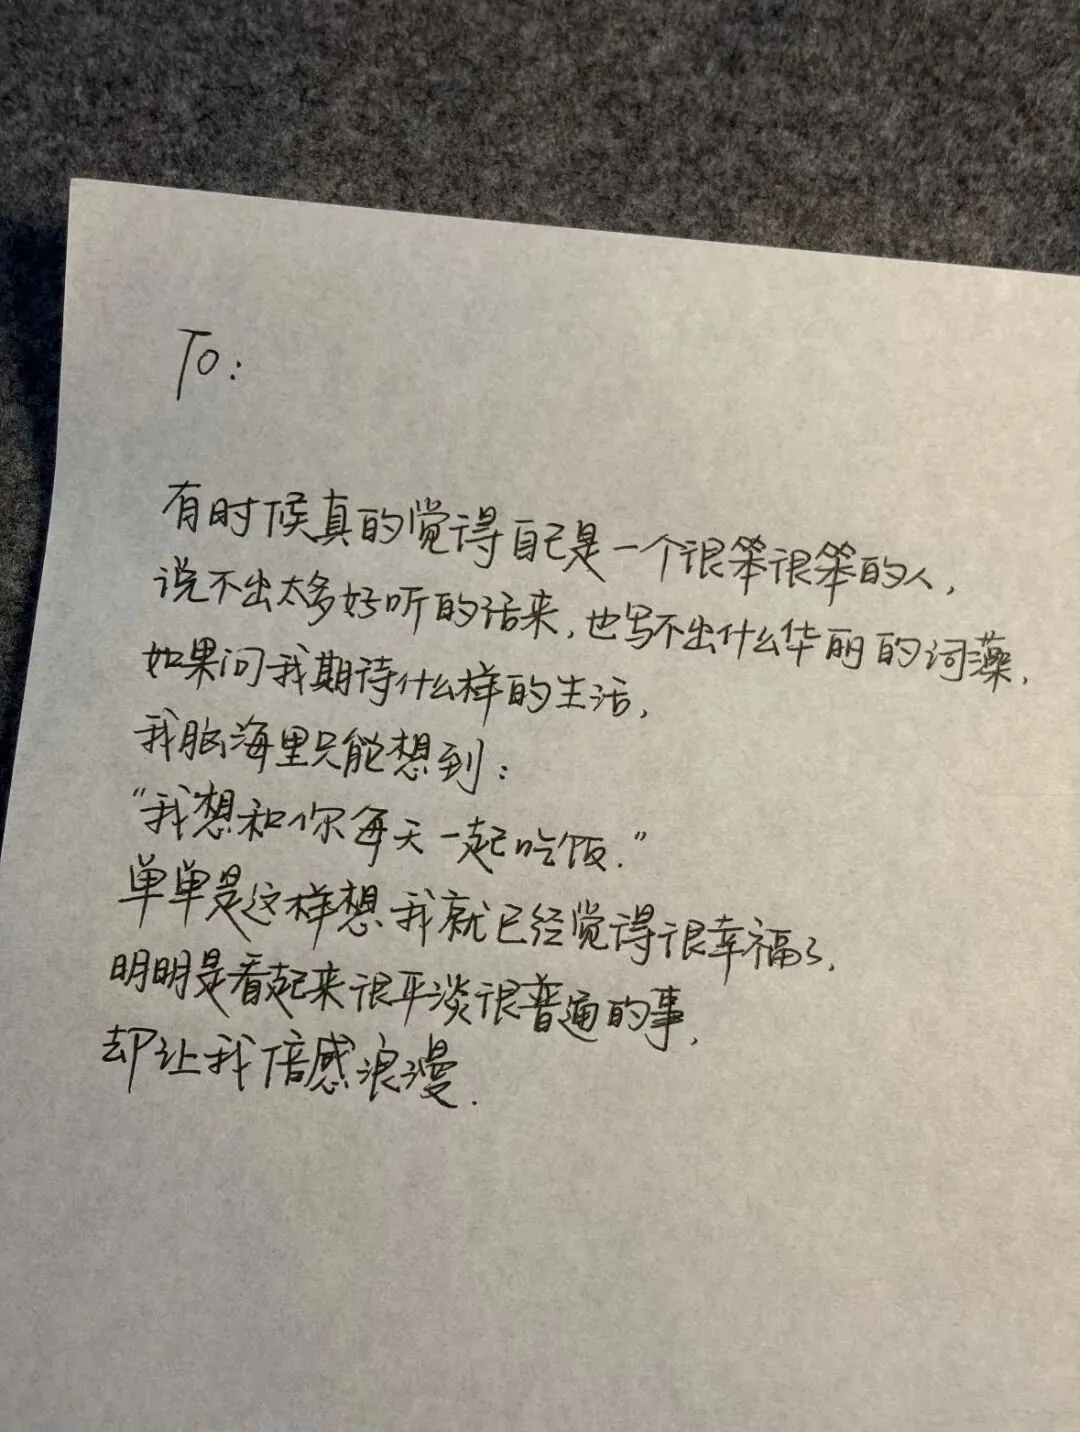 To:
有时候真的觉得自己是一个很笨很笨的人,
说不出太多好听的话来,也写不出什么华丽的词藻,
如果问我期待什么样的生活,
我脑海里只能想到:
"我想和你每天一起吃饭."
单单是这样想我就已经觉得很幸福了,
明明是看起来很平淡很普通的事,
却让我倍感浪漫.